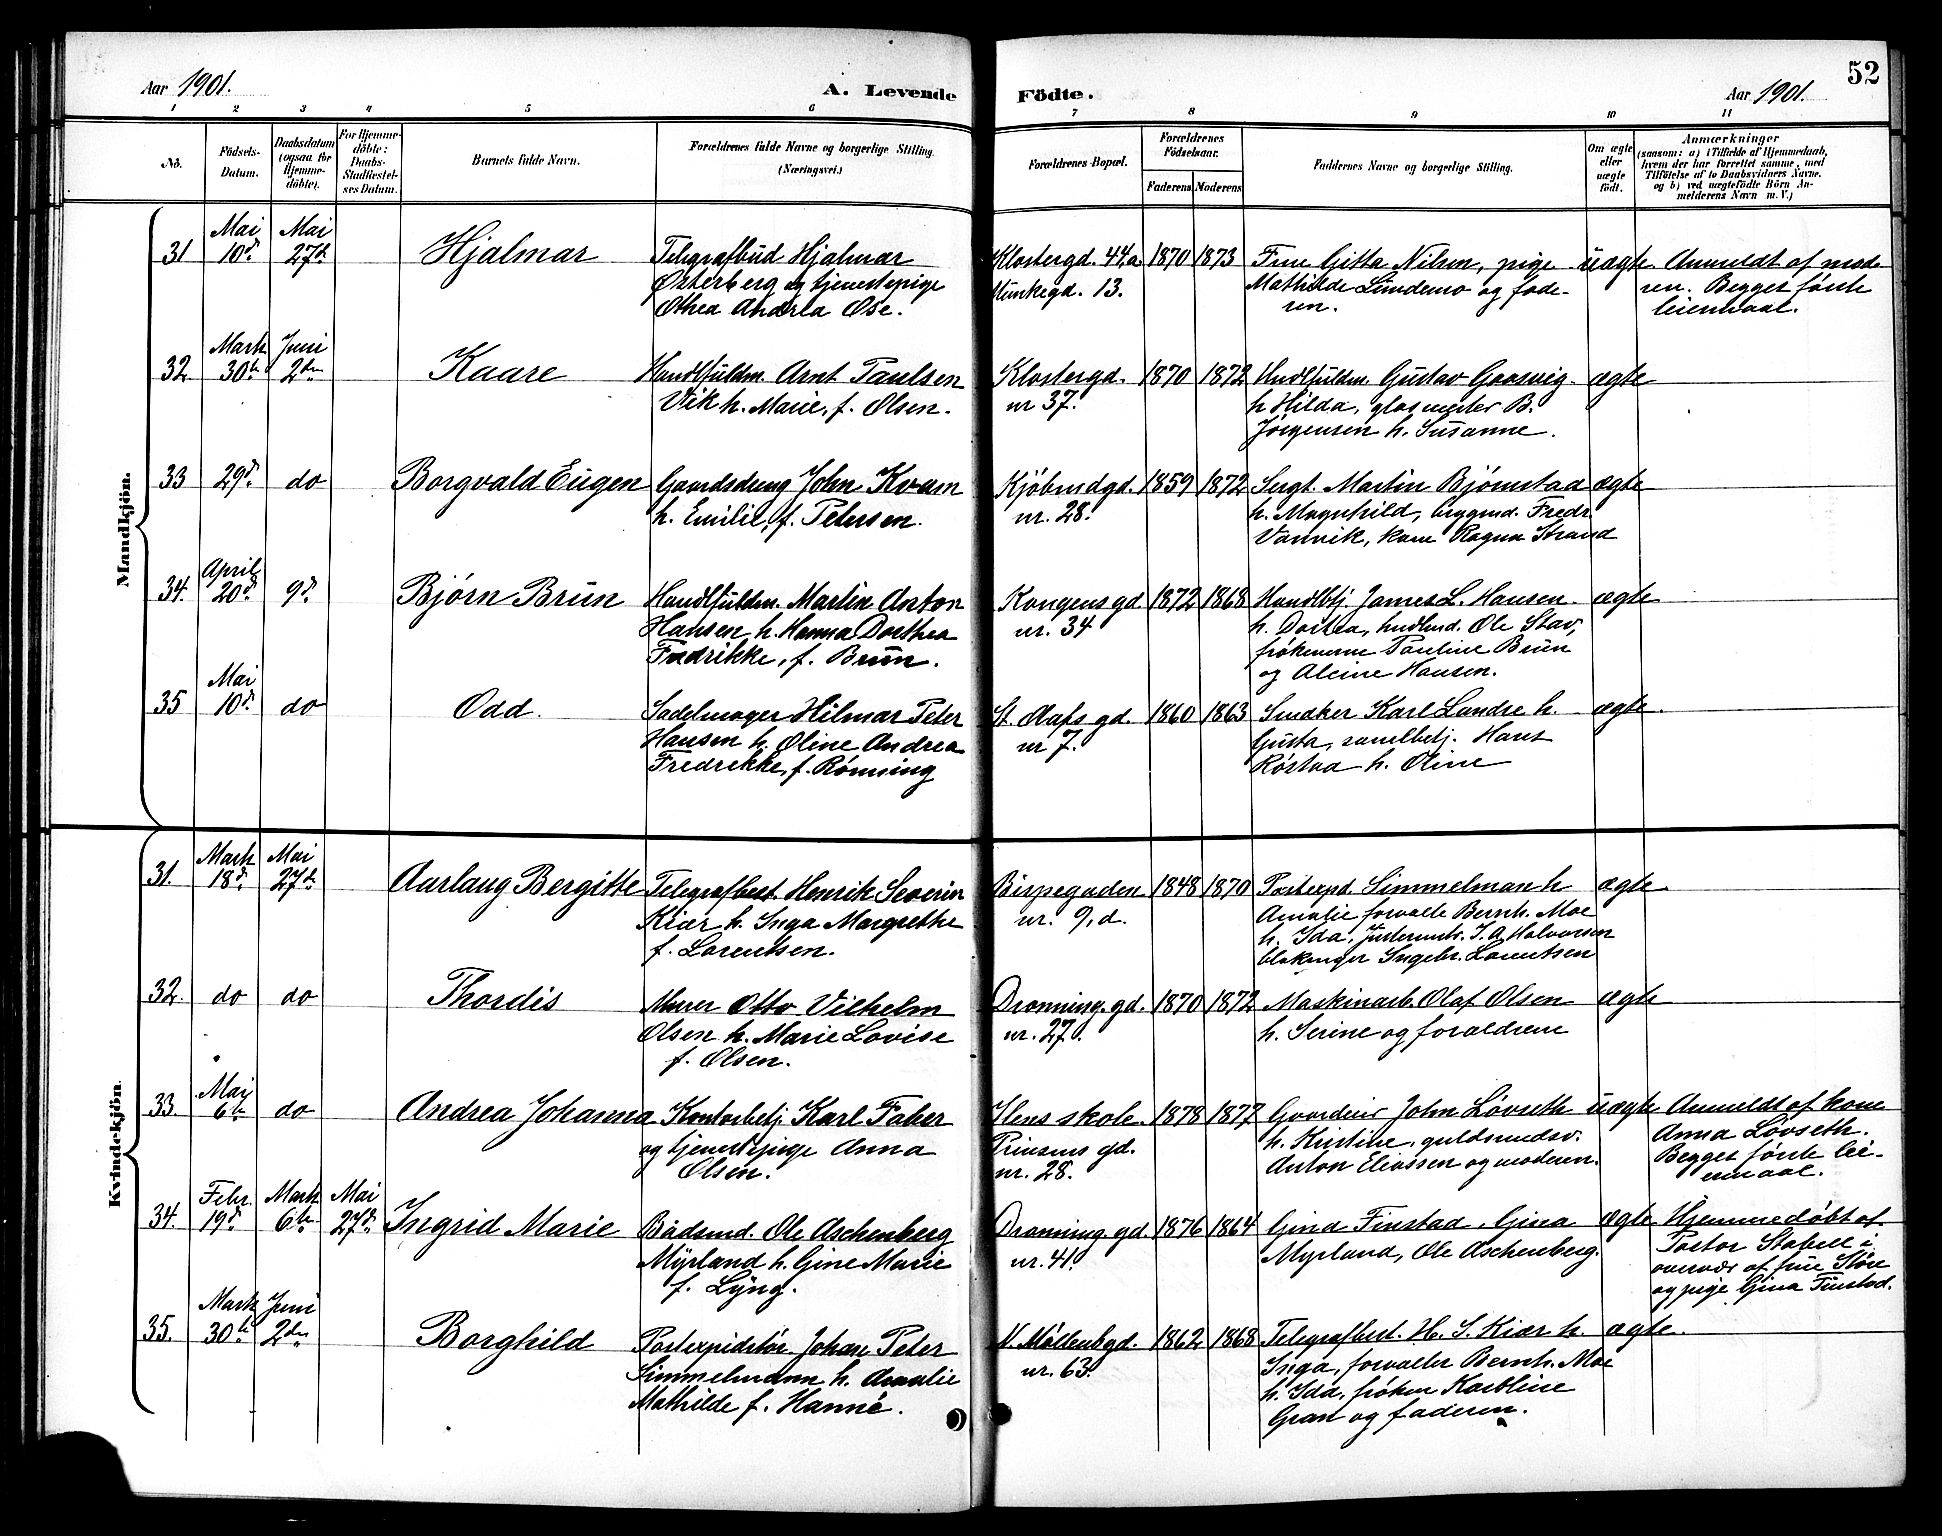 Aar 1901.
A. Levende Födte.
Aar 1901.
52
1 2 3 4 5 6 7 8 9 10 11
No.
Födsels-Datum.
Daabsdatum (ogsaa for Hjemme-döbte).
For Hjemme-döbte: Daabs-Stadfæstel-ses Datum.
Barnets fulde Navn.
Forældrenes fulde Navne og borgerlige Stilling. (Næringsvei.)
Forældrenes Bopæl.
Forældrenes Födselsaar.
Faderens. Moderens.
Faddernes Navne og borgerlige Stilling.
Om ægte eller uægte födt.
Anmærkninger
(saasom: a) i Tilfælde af Hjemmedaab,
hvem der har forrettet samme, med
Tilföielse af to Daabsvidners Navne.
og b) ved uægtefödte Börn An-
melderens Navn m. V.)
Mandkjön.
31 Mai 10d. Mai 27d. Hjalmar
Telegrafbud Hjalmar
Østerberg og tjenestepige
Othea Andrea Øse.
Klostergd. 44.a
Munkegd. 13.
1870 1873
Frue Gitta Nilsen, pige
Mathilde Lundemo og fade-
ren.
uægte
Anmeldt af mode-
ren. Begges förste
leiermaal.
32. Marts 30te Juni 2den Kaare
Handlsfuldm. Arnt Paulsen
Vik h. Marie, f. Olsen.
Klostergd.
nr 37.
1870 1872
Hndlsfuldm. Gustav Gaasvig.
h Hilda, glasmester B.
Jörgensen h. Susanne.
ægte
33 29d. do Borgvald Eugen
Gaardsdreng John Kvam
h. Emilie, f. Petersen.
Kjöbmdgd.
nr. 28.
1859 1872
Sergt. Martin Bjørnstad
h. Magnhild, brygmd. Fredr.
Vannvik, kone Ragna Strand
ægte
34. April 20d. 9d. Bjørn Brun
Handlsfuldm. Martin Anton
Hansen h. Hanna Dorthea
Fredrikke, f. Brun.
Kongens gd
nr. 34
1872 1868
Handlbtj. James L. Hansen
h. Dortea, hndlmd. Ole Stav,
frökenerne Pauline Brun
og Alcine Hansen.
ægte
35 Mai 10d. do Odd.
Sadelmager Hilmar Peter
Hansen h. Oline Andrea
Fredrekke, f. Rönning
St. Olafs gd.
nr 7.
1860 1863
Snedker Karl Landre h.
Gusta, Hans
Röstad h. Oline
ægte.
Kvindekjön.
31. Marts 18d. Mai 27d. Aarlaug Bergitte
Telegrafbest. Henrik Severin
Kiær h. Inga Margrethe
f. Lorentsen.
Bispegaden
nr. 9,d.
1848 1870
Postexpd. Simmelman h
Amalie forvalter Bernh. Moe
h. Ida, Justermstr. I. A. Halvorsen
blikenger Ingebr. Lorentsen
ægte.
32. do do Thordis
Murer Otto Vilhelm
Olsen h. Marie Lovise
f. Olsen.
Dronning. gd.
nr. 27.
1870 1872
Maskinarb. Olaf Olsen
h. Serine og forældrene
ægte
33. Mai 6te do Andrea Johanna
Kontorbetj. Karl Faber
og tjenestepige Anna
Olsen.
Ilens skole.
Prinsens gd.
nr. 28.
1878 1877
Gaardeier John Lövseth
h. Kirstine, guldsmedsv.
Anton Eliassen og moderen.
uægte
Anmeldt af kone
Anna Lövseth.
Begges förste lei-
ermaal.
34. Febr. 19d. Marts 6te Mai 27d. Ingrid Marie
Baadsmd. Ole Aschenberg
Myrland h. Gine Marie
f. Lyng.
Dronning. gd.
nr. 41.
1876 1864
Gina Finstad, Gina
Myrland, Ole Aschenberg.
ægte
Hjemmedöbt af
Pastor Stabell i
overvær af frue Støre
og pige Gina Finstad.
35. Marts 30te Juni 2den Borghild
Postexpeditör Johan Peter
Simmelmann h. Amalie
Mathilde f. Hanné.
N. Möllenbgd.
nr. 63.
1862 1868
Telegrafbest. H. S. Kiær h.
Inga, forvalter Bernh. Moe
h. Ida, fröken Karoline
Gran og faderen.
ægte.